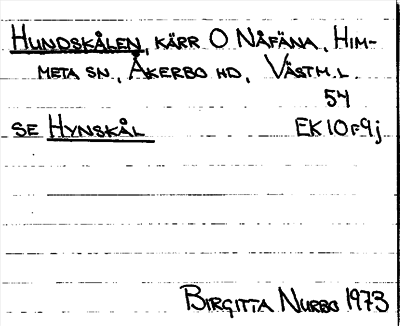 HUNDSKÅLEN, KÄRR O NÅFÄNA, HIM-
META SN., ÅKERBO HD, VÄSTM.L.
54
SE HYNSKÅL EK 10f9j
BIRGITTA NURBO 1973